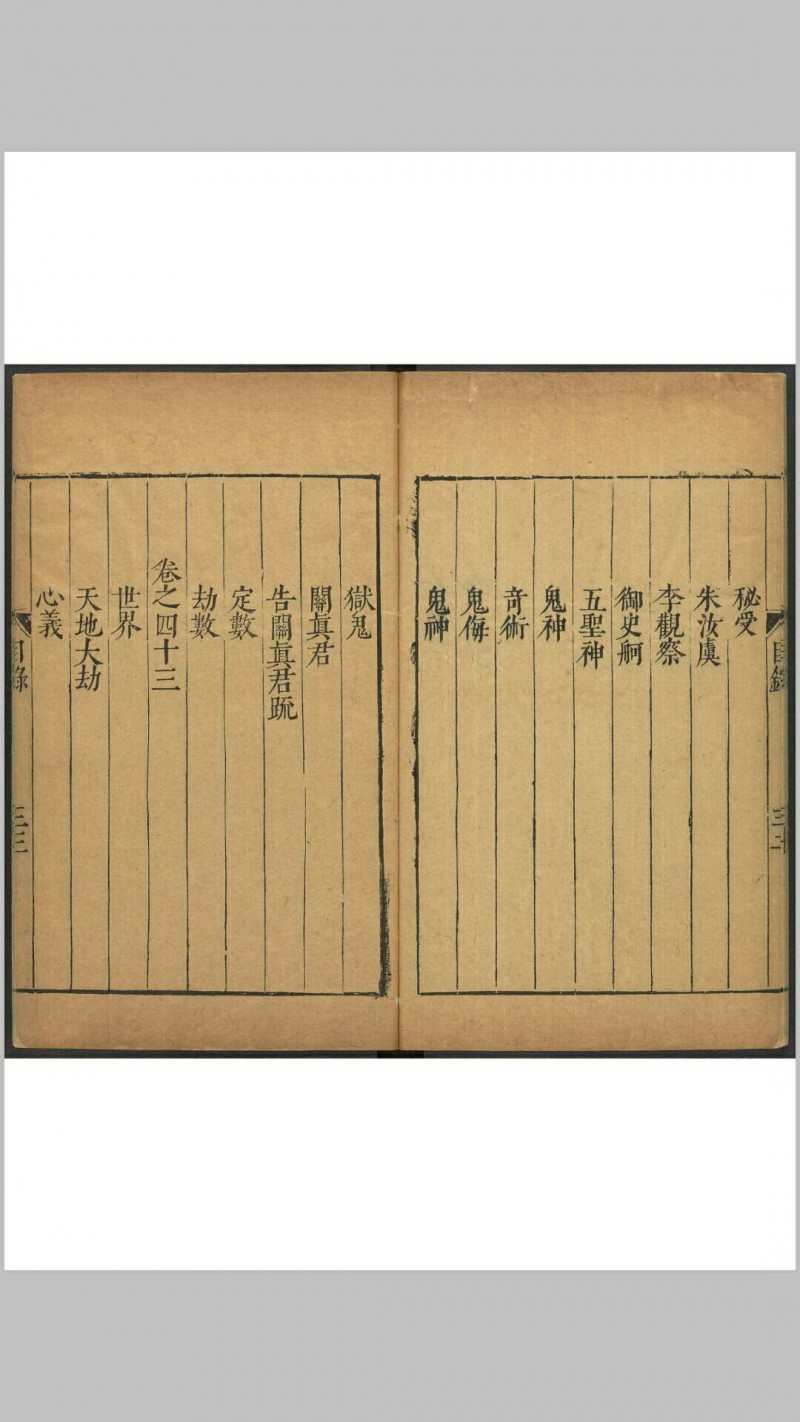 秘受
朱汝虞
李觀察
御史舸
五聖神
鬼神
竒術
鬼侮
鬼神
獄鬼
關眞君
告關眞君疏
定數
劫數
卷之四十三
世界
天地大劫
心義
目錄
目錄
三三